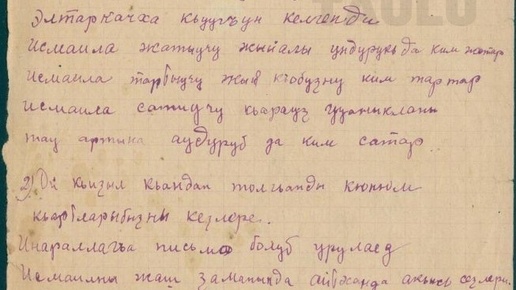 Элтаркачха къуугъун келгенди
Исмаила жатыучу жыйалы ундурукъда ким жатар
Исмаила тартыучу жыя къобузну ким тартар
Исмаила сатыучу къараууз гуааныкланы
тау артына аудуруб да ким сатар
2) Да къызыл къандан толгъанды кюнюм
къарбларыбызны кезлери.
Инараллагъа письмо болуб урулаед
Исмаилны жаш заманында айбжанда акъыкъ сезлери.